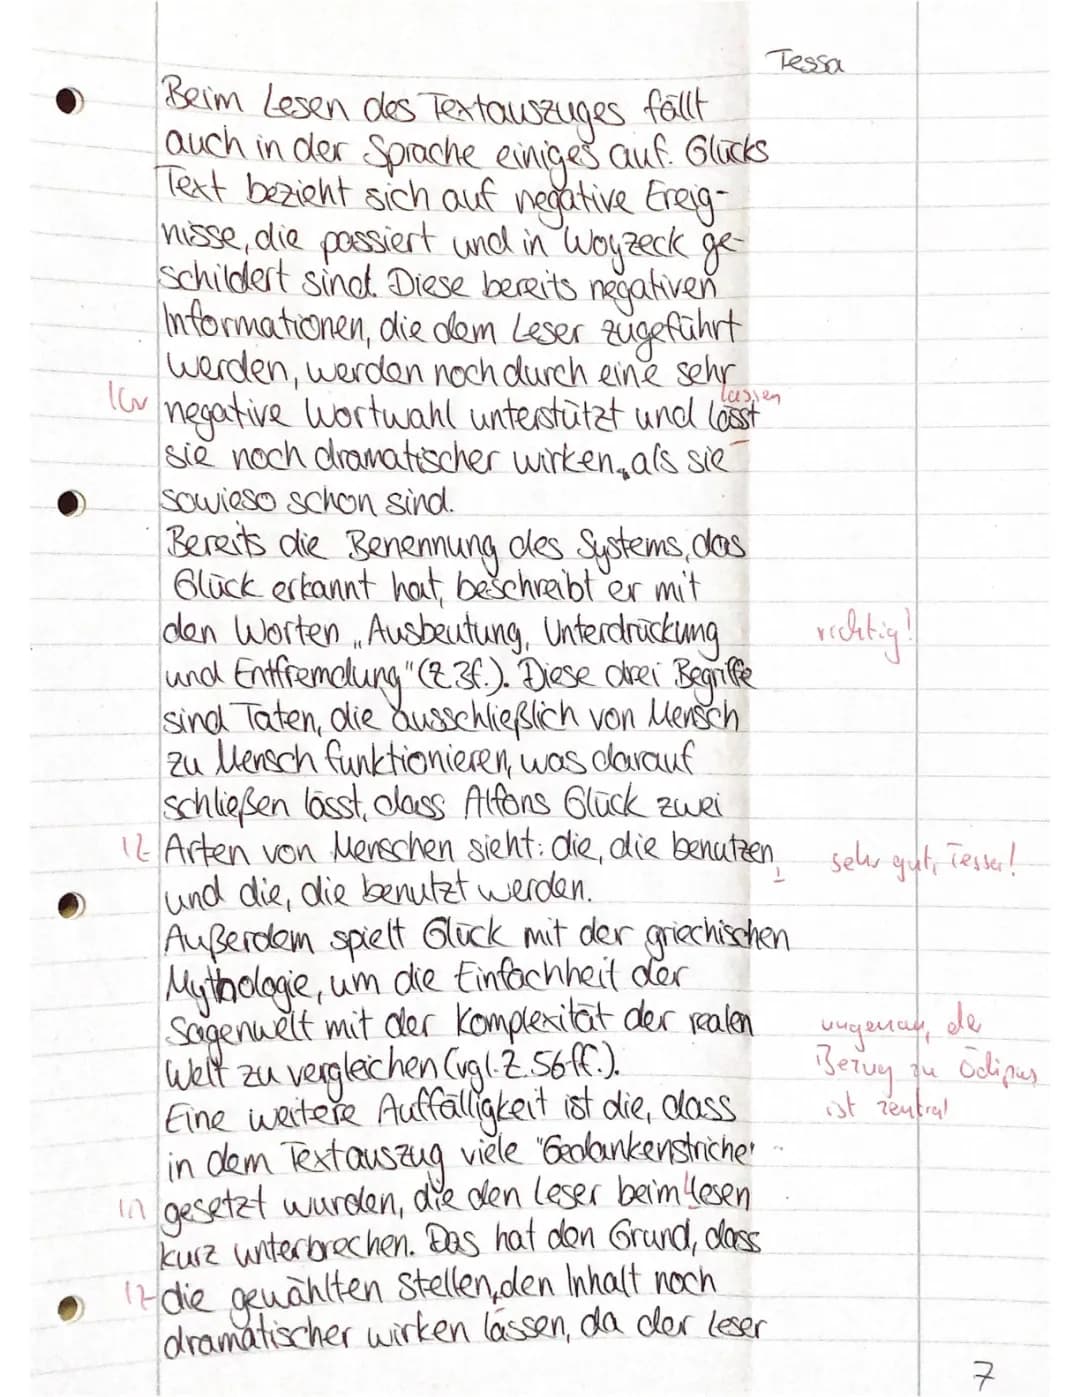 Tessa
Beim Lesen des Textauszuges fällt
auch in der Sprache einiges auf. Glücks
Text bezieht sich auf negative Ereig-
nisse, die passiert und in Woyzeck ge-
schildert sind. Diese bereits negativen
Informationen, die dem Leser zugeführt
werden, werden noch durch eine sehr
lassen
Gr negative Wortwahl unterstützt und lässt
sie noch dramatischer wirken, als sie
sowieso schon sind.
Bereits die Benennung des Systems, das
Glück erkannt hat, beschreibt er mit
den Worten „Ausbeutung, Unterdrückung richtig!
und Entfremdung" (Z.3f.). Diese drei Begriffe
sind Taten, die ausschließlich von Mensch
zu Mensch funktionieren, was darauf
schließen lässt, dass Alfons Glück zwei
1Z Arten von Menschen sieht: die, die benutzen, sehr gut, Tessa!
und die, die benutzt werden.
Außerdem spielt Glück mit der griechischen
Mythologie, um die Einfachheit der
Sagenwelt mit der Komplexität der realen ungenau, de
Welt zu vergleichen (vgl. Z.56ff.). Bezug zu Ödipus
Eine weitere Auffälligkeit ist die, dass ist zentral
in dem Textauszug viele "Gedankenstriche"
gesetzt wurden, die den Leser beim Lesen
kurz unterbrechen. Das hat den Grund, dass
1Z die gewählten Stellen, den Inhalt noch
dramatischer wirken lassen, da der Leser
7